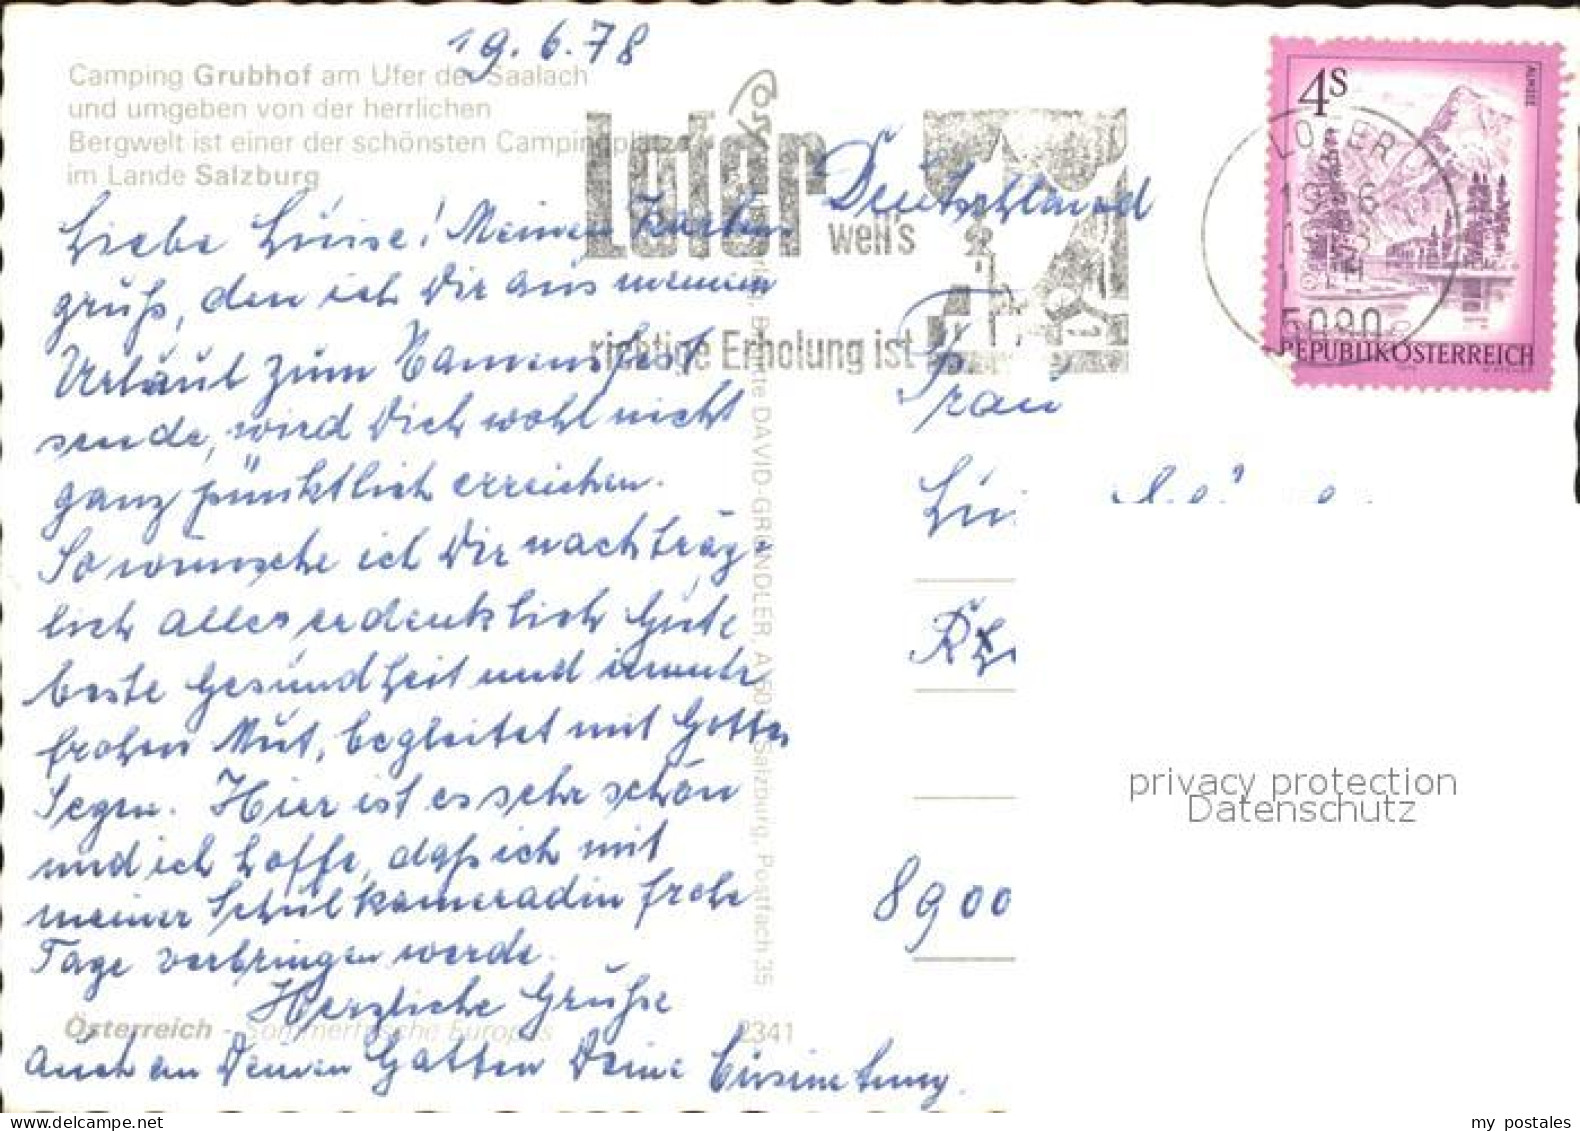 19.6.78
Camping Grubhof am Ufer der Saalach
und umgeben von der herrlichen
Bergwelt ist einer der schönsten Campingplätze
im Lande Salzburg
Liebe Luise! Meinen Karten-
gruß, den ich Dir aus meinem
Urlaub zum Namensfest
sende, wird Dich wohl nicht
ganz pünktlich erreichen.
So wünsche ich Dir nachträg-
lich alles erdenklich Gute
beste Gesundheit und
frohen Mut, begleitet mit Gottes
Segen. Hier ist es sehr schön
und ich hoffe, daß ich mit
meiner Schulkameradin frohe
Tage verbringen werde.
Herzliche Grüße
auch an Deinen Gatten Deine
Österreich - Sommerfrische Europas
2341
DAVID-GRÜNDLER, Salzburg, Postfach 35
Lofer
weil's
richtige Erholung ist
4S
ALMSEE
REPUBLIK ÖSTERREICH
LOFER
5090
Deutschland
Frau
8900
privacy protection
Datenschutz
my postales